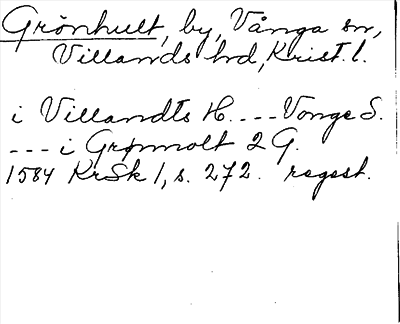 Grönhult, by, Vånga sn,
Villands hd, Krist. l.
i Villandts H. --- Vonge S.
--- i Grønnolt 2 G.
1584 KrSk 1, s. 272. regest.